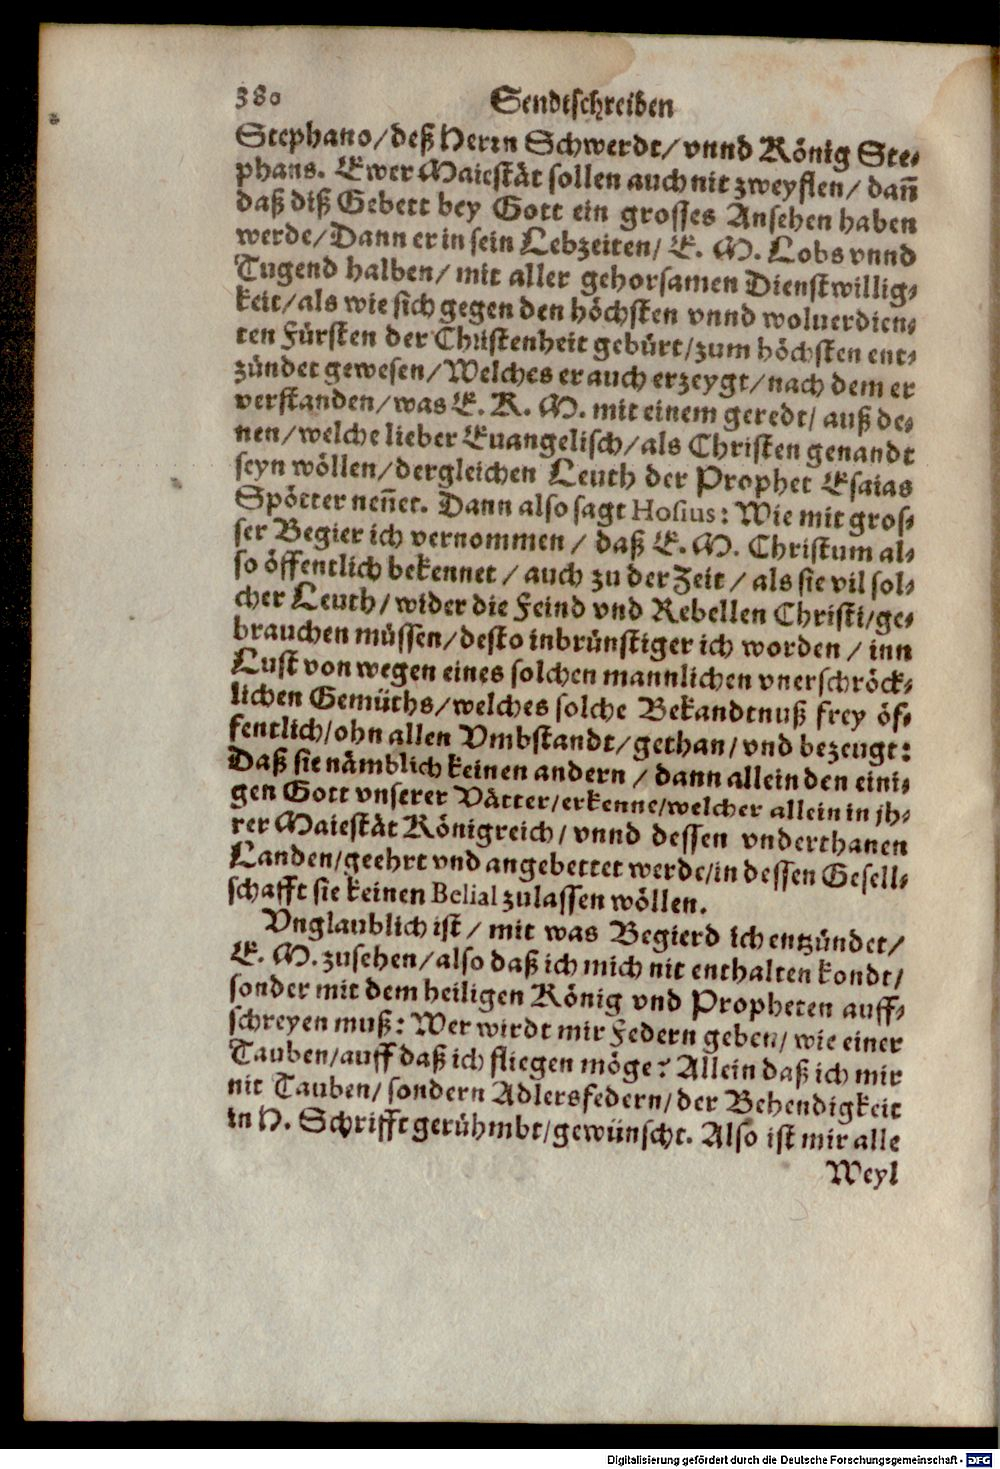 380 Sendtschreiben
Stephano/deß Herrn Schwerdt/vnnd König Ste-
phans. Ewer Maiestät sollen auch nit zweyflen/dañ
daß diß Gebett bey Gott ein grosses Ansehen haben
werde/Dann er in sein Lebzeiten/E. M. Lobs vnnd
Tugend halben/mit aller gehorsamen Dienstwillig-
keit/als wie sich gegen den höchsten vnnd woluerdien-
ten Fürsten der Christenheit gebürt/zum höchsten ent-
zündet gewesen/Welches er auch erzeygt/nach dem er
verstanden/was E. K. M. mit einem geredt/auß de-
nen/welche lieber Euangelisch/als Christen genandt
seyn wöllen/dergleichen Leuth der Prophet Esaias
Spötter neñet. Dann also sagt Hosius: Wie mit gros-
ser Begier ich vernommen/daß E. M. Christum al-
so öffentlich bekennet/auch zu der Zeit/als sie vil sol-
cher Leuth/wider die Feind vnd Rebellen Christi/ge-
brauchen müssen/desto inbrünstiger ich worden/inn
Lust von wegen eines solchen mannlichen vnerschröck-
lichen Gemüths/welches solche Bekandtnuß frey öf-
fentlich/ohn allen Vmbstandt/gethan/vnd bezeugt:
Daß sie nämblich keinen andern/dann allein den eini-
gen Gott vnserer Vätter/erkenne/welcher allein in jh-
rer Maiestät Königreich/vnnd dessen vnderthanen
Landen/geehrt vnd angebettet werde/in dessen Gesell-
schafft sie keinen Belial zulassen wöllen.
Vnglaublich ist/mit was Begierd ich entzündet/
E. M. zusehen/also daß ich mich nit enthalten kondt/
sonder mit dem heiligen König vnd Propheten auff-
schreyen muß: Wer wirdt mir Federn geben/wie einer
Tauben/auff daß ich fliegen möge? Allein daß ich mir
nit Tauben/sondern Adlersfedern/der Behendigkeit
in H. Schrifft gerühmbt/gewünscht. Also ist mir alle
Weyl
Digitalisierung gefördert durch die Deutsche Forschungsgemeinschaft - DFG